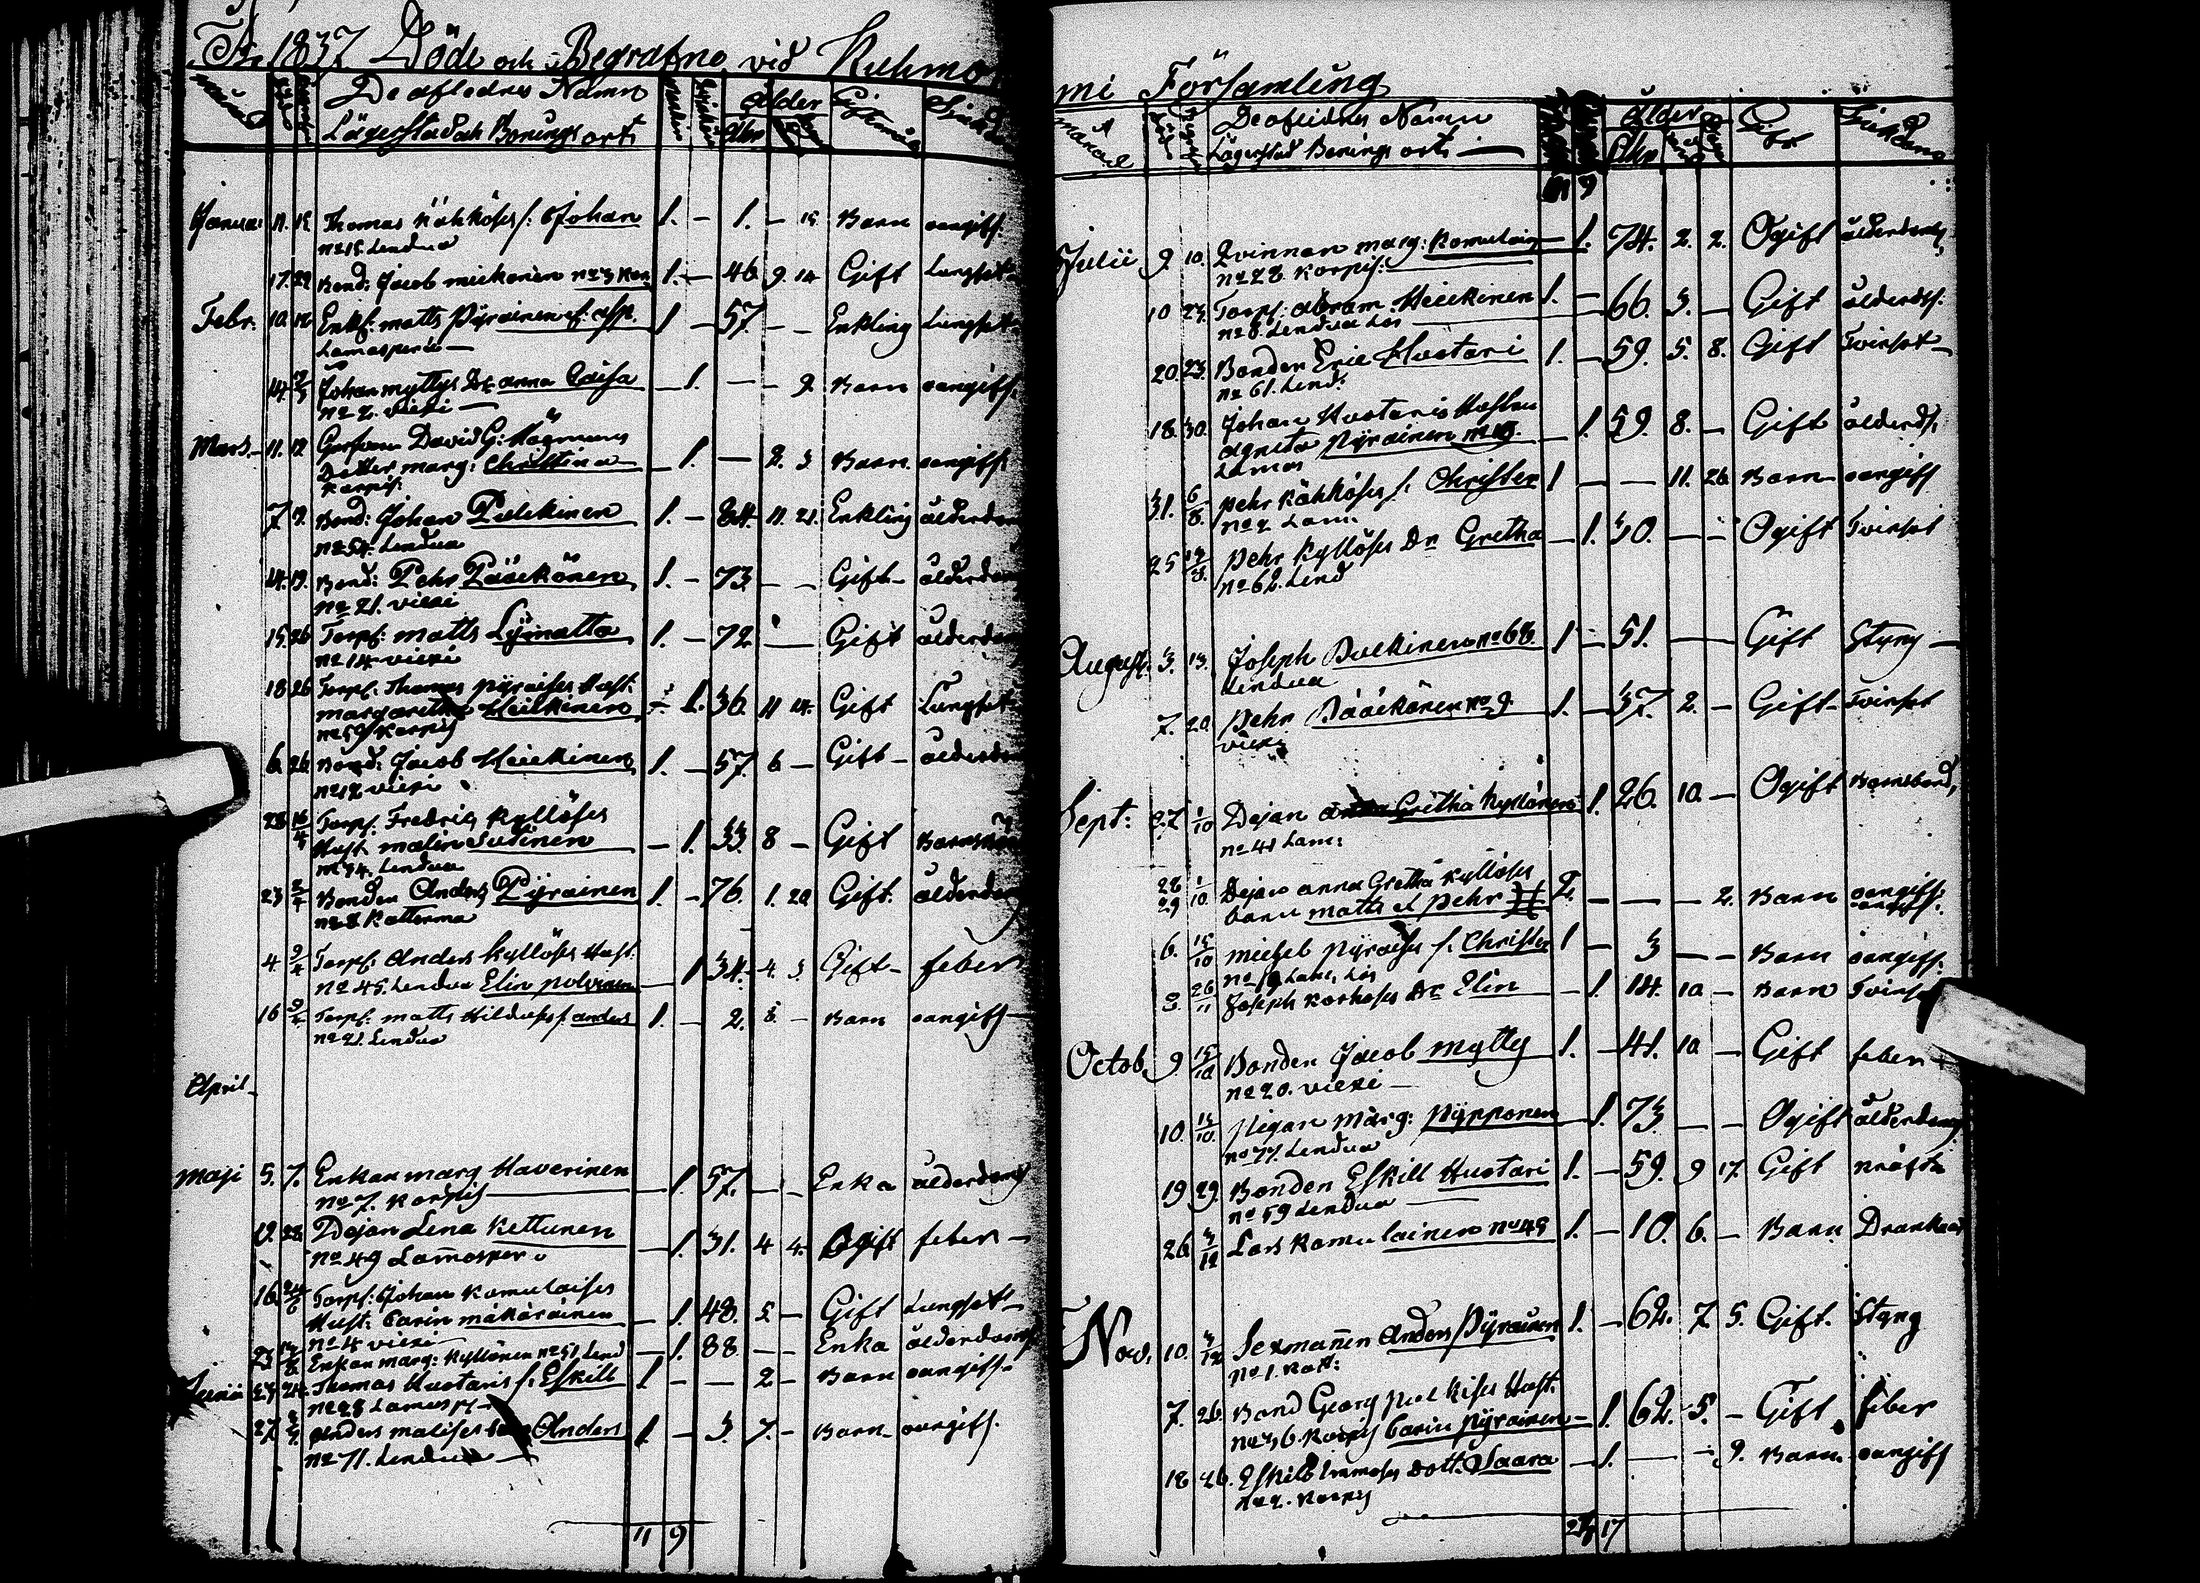 År 1837 Döde och Begrafne vid Kuhmo
Månad De aflednes Namn Ålder
Lägerstad och Boningsort Åhr
Januar: 11. 19 Thomas Kähköses s. Johan 1. – 1. – 15 Barn oangifs.
No 15. Lendua
17. 29 Bond: Jacob Meikonen No 3 Kor. 1. – 46. 9. 14 Gift Lungsot
Febr: 10 Enkl: Matts Pyrainen 1 – 57. – – Enkling Lungsot
Lamasperä –
14. Johan Myttys Dr: Anna Caisa – 1. – – 9. Barn oangifs.
No 2. Vieki –
Mars – 11. 12 David G:
Dotter Marg: Christina – 1. – 2. 3 Barn oangifs
Korpis:
7. 9. Bond: Johan Pulckinen 1. – 84. 11. 21. Enkling ålderdom
No 54. Lendua
14. 19. Bond: Pehr Pääckönen 1. – 73. – – Gift – ålderdom
No 21. Vieki
15. 26 Torp: Matts Lÿmatta 1. – 72 – Gift ålderdom
No 14 Vieki
18 26 Torp: Thomas Pyraises Hust:
Margaretha Heickinen 1. 36. 11 14. Gift Lungsot
No 59 Korpis
6. 26 Bond: Jacob Heickinen 1. – 57. 6 – Gift – ålderdom
No 12 Vieki
28 Torp: Fredric Kyllöses
Hust. Malin Sutinen – 1. 33. 8 – Gift
No 74. Lendua
23 Bonden Anders Pyrainen 1. – 76. 1. 20. Gift. ålderdom
No 8 Katerma
4. 9/4 Torp: Anders Kyllöses Hust:
No 45. Lendua Elin Polvinen 1 34. 4. 3 Gift – feber
16 9/4 Torp: Matts Hildukses s. Anders 1. – 2. 8. – Barn oangifs –
No 21. Lendua
April –
Maji 5. 7. Enkan Marg. Haverinen – 1. 57. – – Enka ålderdom
No 7. Korpis
19. 28 Dejan Lena Kettunen – 1. 31. 4 4. Ogift feber –
No 49 Lamasper
16 Torp: Johan Komulaises
Hust: Carin Makäräinen – 1. 48. 5 – Gift Lungsot –
No 4 Vieki
23 Enkan Marg: Kyllönen No 51 Lend – 1. 88. – – Enka ålderdom
Junii 23 24. Thomas Huotaris s. Eskill 1 – – 2 – Barn oangifs.
No 28 Lamasp
27. Anders Malises Anders 1. – 3. 7. – Barn – oangifs.
No 71. Lendua –
11 9
mi Församling
Månad De afledne Namn Ålder
Lägerstad Bonings ort: – Åhr Gift Siukdom
11 9
Julii 9. 10. Qvinnan Marg: Komulain – 1. 74. 2. 2. Ogift ålderdoms
No 28 Korpis:
10 23. Torp: Abram Heickinen 1. – 66. 3. – Gift ålderds.
No 8. Lendua
20. 23. Bonden Eric Huotari 1. – 59. 5. 8. Gift Tvinsot –
No 61. Lend:
18. 30. Johan Huotaris Hustru
Agneta Pyrainen No 19. – 1. 59. 8. – Gift ålderds.
Lamas
31. 6/8. Pehr Kähköses s. Christer 1 – – 11. 26 Barn – oangifs
No 2 Lam:
25 Pehr Kyllöses Dr Gretha – 1. 30. – – Ogift Tvinsot
No 62. Lend
August. 3. 13. Joseph Pulkinen No 68. 1 – 51. – Gift Styng –
Lendua
7. 20. Pehr Pääckönen No 9. 1. – 37. 2. – Gift – Tvinsot
Vieki
Sept: 27 1/10 Dejan Gretha Kyllönen 1. 26. 10. – Ogift Barnsbörd,
No 41 Lam:
28 29 1/10 Dejan Anna Gretha Kyllöses
barn Matts & Pehr 2. – – – 2. Barn oangifs.
6. 15/10 Michel Pyraises s. Christer 1 – 3 – – Barn oangifs.
No 19 Lam.
3. Joseph Korhoses Dr Elin – 1. 14. 10 – Barn Tvinsot
Octob. 9 15/10 Bonden Jacob Mytty 1. – 41. 10 – Gift feber
No 20. Vieki –
10. 15/10. Pigan Marg: Pypponen – 1. 73. – – Ogift ålderdoms
No 77. Lendua
19 29. Bonden Eskill Huotari 1. – 59. 9 17. Gift
No 59 Lendua
26. 3/12 Lars Komulainen No 49 1. – 10. 6. – Barn
Nov. 10. 3/12 Sexmannen Anders Pyrainen 1. – 62. 7 5. Gift. Styng
No 1. Kat:
7. 26. Bond Georg Pulkises Hust.
No 36. Korpis Carin Pyrainen – 1. 62. 5. – Gift feber
18 26. Eskils Immoses Dott. Saara – 1. – – 9. Barn oangifs
No 2. Korpis
24 17